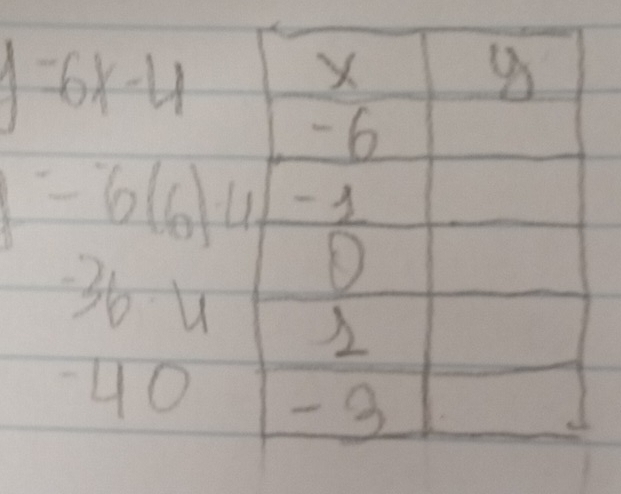 y = 6x - 4
y = -6(6) - 4
-36 - 4
-40
x y
-6
-1
0
1
-3